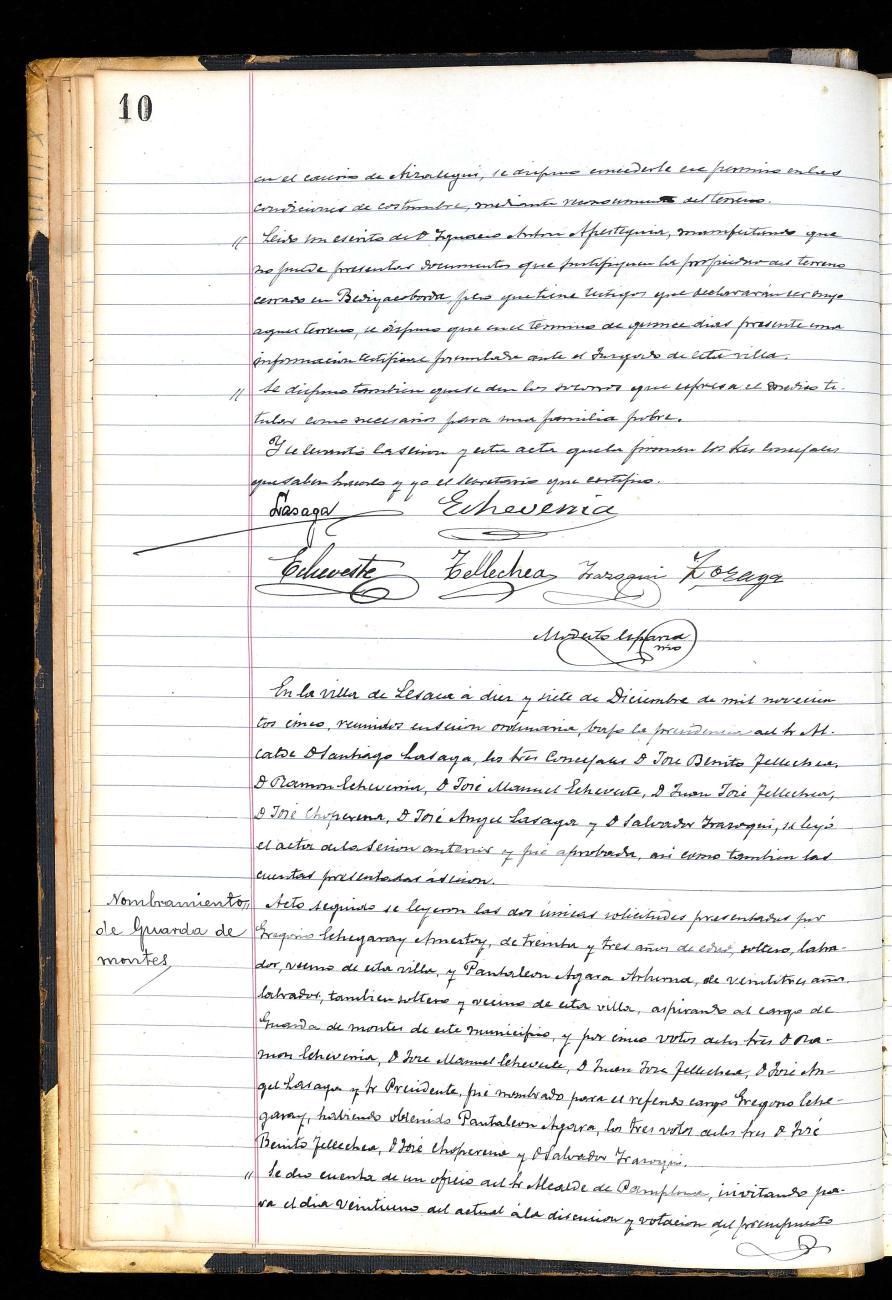 10
en el caserio de, se dispuso concederle ese permiso en las
condiciones de costumbre, mediante reconocimiento del terreno.
" Leido un escrito de D Ignacio Anton Apesteguia, manifestando que
no puede presentar documentos que justifiquen la propiedad del terreno
cerrado en, pero que tiene testigos que declararán ser suyo
aquel terreno, se dispuso que en el termino de quince dias presente una
informacion testifical formulada ante el Juzgado de esta villa.
" Se dispuso tambien que se den los socorros que espresa el medico ti-
tular como necesarios para una familia pobre.
Y se levantó la sesion y esta acta que la firman los Sres Concejales
que saben hacerlo y yo el Secretario que certifico.
Lasaga Echeverria
Echeveste Tellechea Irazoqui
Modesto Esparza
En la villa de Lesaca á diez y siete de Diciembre de mil novecien
tos cinco, reunidos en sesion ordinaria, bajo la presidencia del Sr Al-
calde D Santiago Lasaga, los Sres Concejales D Jose Benito Tellechea,
D Ramon Echeverria, D José Manuel Echeveste, D Juan José Tellechea,
D José Choperena, D José Angel Lasaga y D Salvador Irazoqui, se leyó
el acta de la sesion anterior y fué aprobada, asi como tambien las
cuentas presentadas á sesion.
Nombramiento
de Guarda de
montes
" Acto seguido se leyeron las dos únicas solicitudes presentadas por
Gregorio Echegaray, de treinta y tres años de edad, soltero, labra-
dor, vecino de esta villa, y Pantaleon Agara, de veintitres años,
labrador, tambien soltero y vecino de esta villa, aspirando al cargo de
Guarda de montes de este municipio, y por cinco votos de los Sres D Ra-
mon Echeverria, D Jose Manuel Echeveste, D Juan Jose Tellechea, D José An-
gel Lasaga y Sr Presidente, fué nombrado para el referido cargo Gregorio Eche-
garay, habiendo obtenido Pantaleon Agara, los tres votos de los Sres D José
Benito Tellechea, D José Choperena y D Salvador Irazoqui.
" Se dio cuenta de un oficio del Sr Alcalde de Pamplona, invitando pa-
ra el dia veintiuno del actual á la discusion y votacion del presupuesto